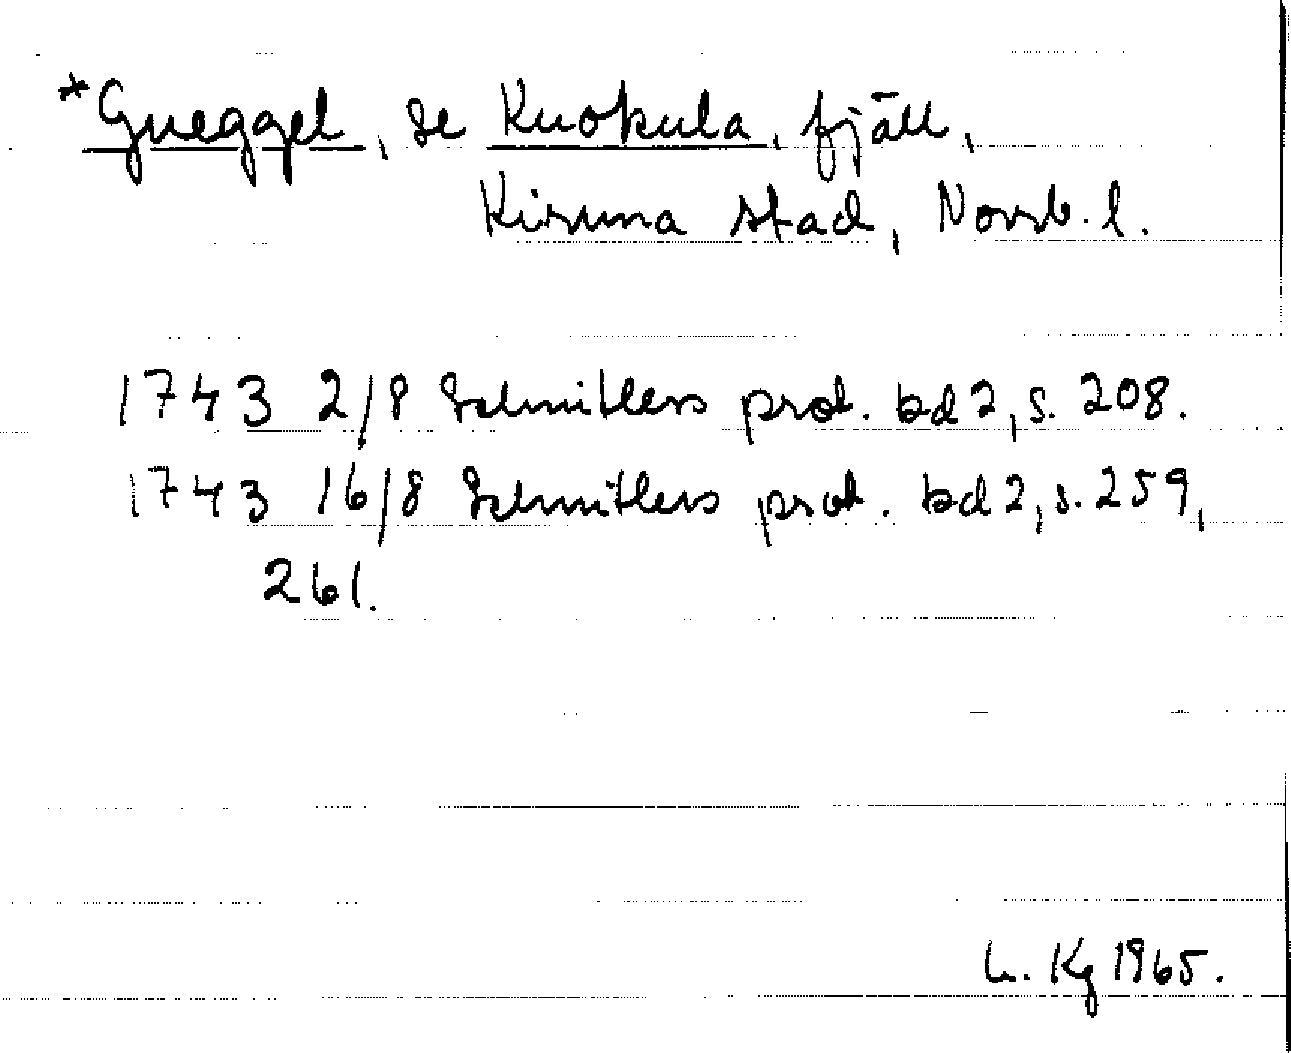 *Gueggel, se Kuokula, fjäll,
Kiruna stad, Norrb. l.
1743 2/8 Schnitlers prot. bd 2, s. 208.
1743 16/8 Schnitlers prot. bd 2, s. 259,
261.
L. Kg 1965.